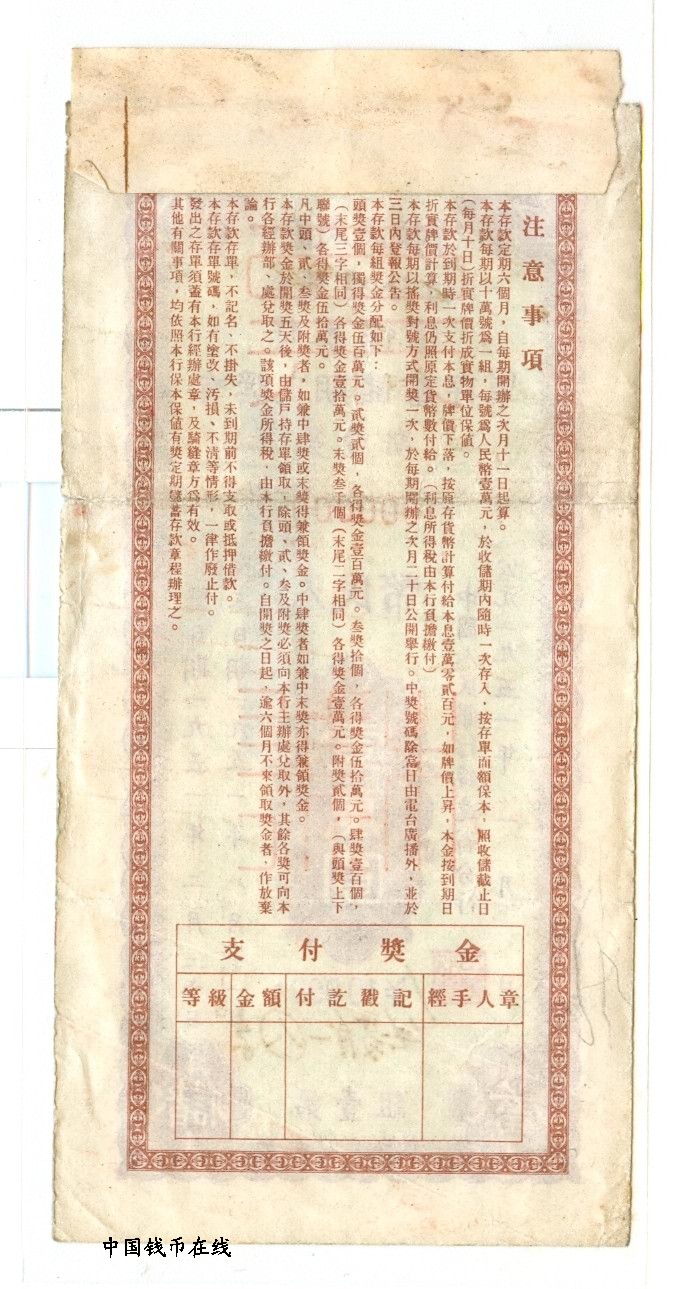 注意事項
本存款定期六個月，自每期開辦之次月十一日起算。
本存款每期以十萬號爲一組，每號爲人民幣壹萬元，於收儲期內隨時一次存入，按存單面額保本，照收儲截止日
（每月十日）折實牌價折成實物單位保值。
本存款於到期時一次支付本息，牌價下落，按原存貨幣計算付給本息壹萬零貳百元，如牌價上昇，本金按到期日
折實牌價計算，利息仍照原定貨幣數付給。（利息所得稅由本行負擔繳付）
本存款每期以搖獎對號方式開獎一次，於每期開辦之次月二十日公開舉行。中獎號碼除當日由電台廣播外，並於
三日內登報公告。
本存款每組獎金分配如下：
頭獎壹個，獨得獎金伍百萬元。貳獎貳個，各得獎金壹百萬元。叁獎拾個，各得獎金伍拾萬元。肆獎壹百個，
（末尾三字相同）各得獎金壹拾萬元。末獎叁千個（末尾二字相同）各得獎金壹萬元。附獎貳個，（與頭獎上下
聯號）各得獎金伍拾萬元。
凡中頭、貳、叁獎及附獎者，如兼中肆獎或末獎得兼領獎金。中肆獎者如兼中末獎亦得兼領獎金。
本存款獎金於開獎五天後，由儲戶持存單領取，除頭、貳、叁及附獎必須向本行主辦處兌取外，其餘各獎可向本
行各經辦部、處兌取之。該項獎金所得稅，由本行負擔繳付。自開獎之日起，逾六個月不來領取獎金者，作放棄
論。
本存款存單，不記名、不掛失，未到期前不得支取或抵押借款。
本存款存單號碼，如有塗改、汚損、不淸等情形，一律作廢止付。
發出之存單須蓋有本行經辦處章，及騎縫章方爲有效。
其他有關事項，均依照本行保本保值有獎定期儲蓄存款章程辦理之。
支付獎金
等級 金額 付訖戳記 經手人章
中国钱币在线